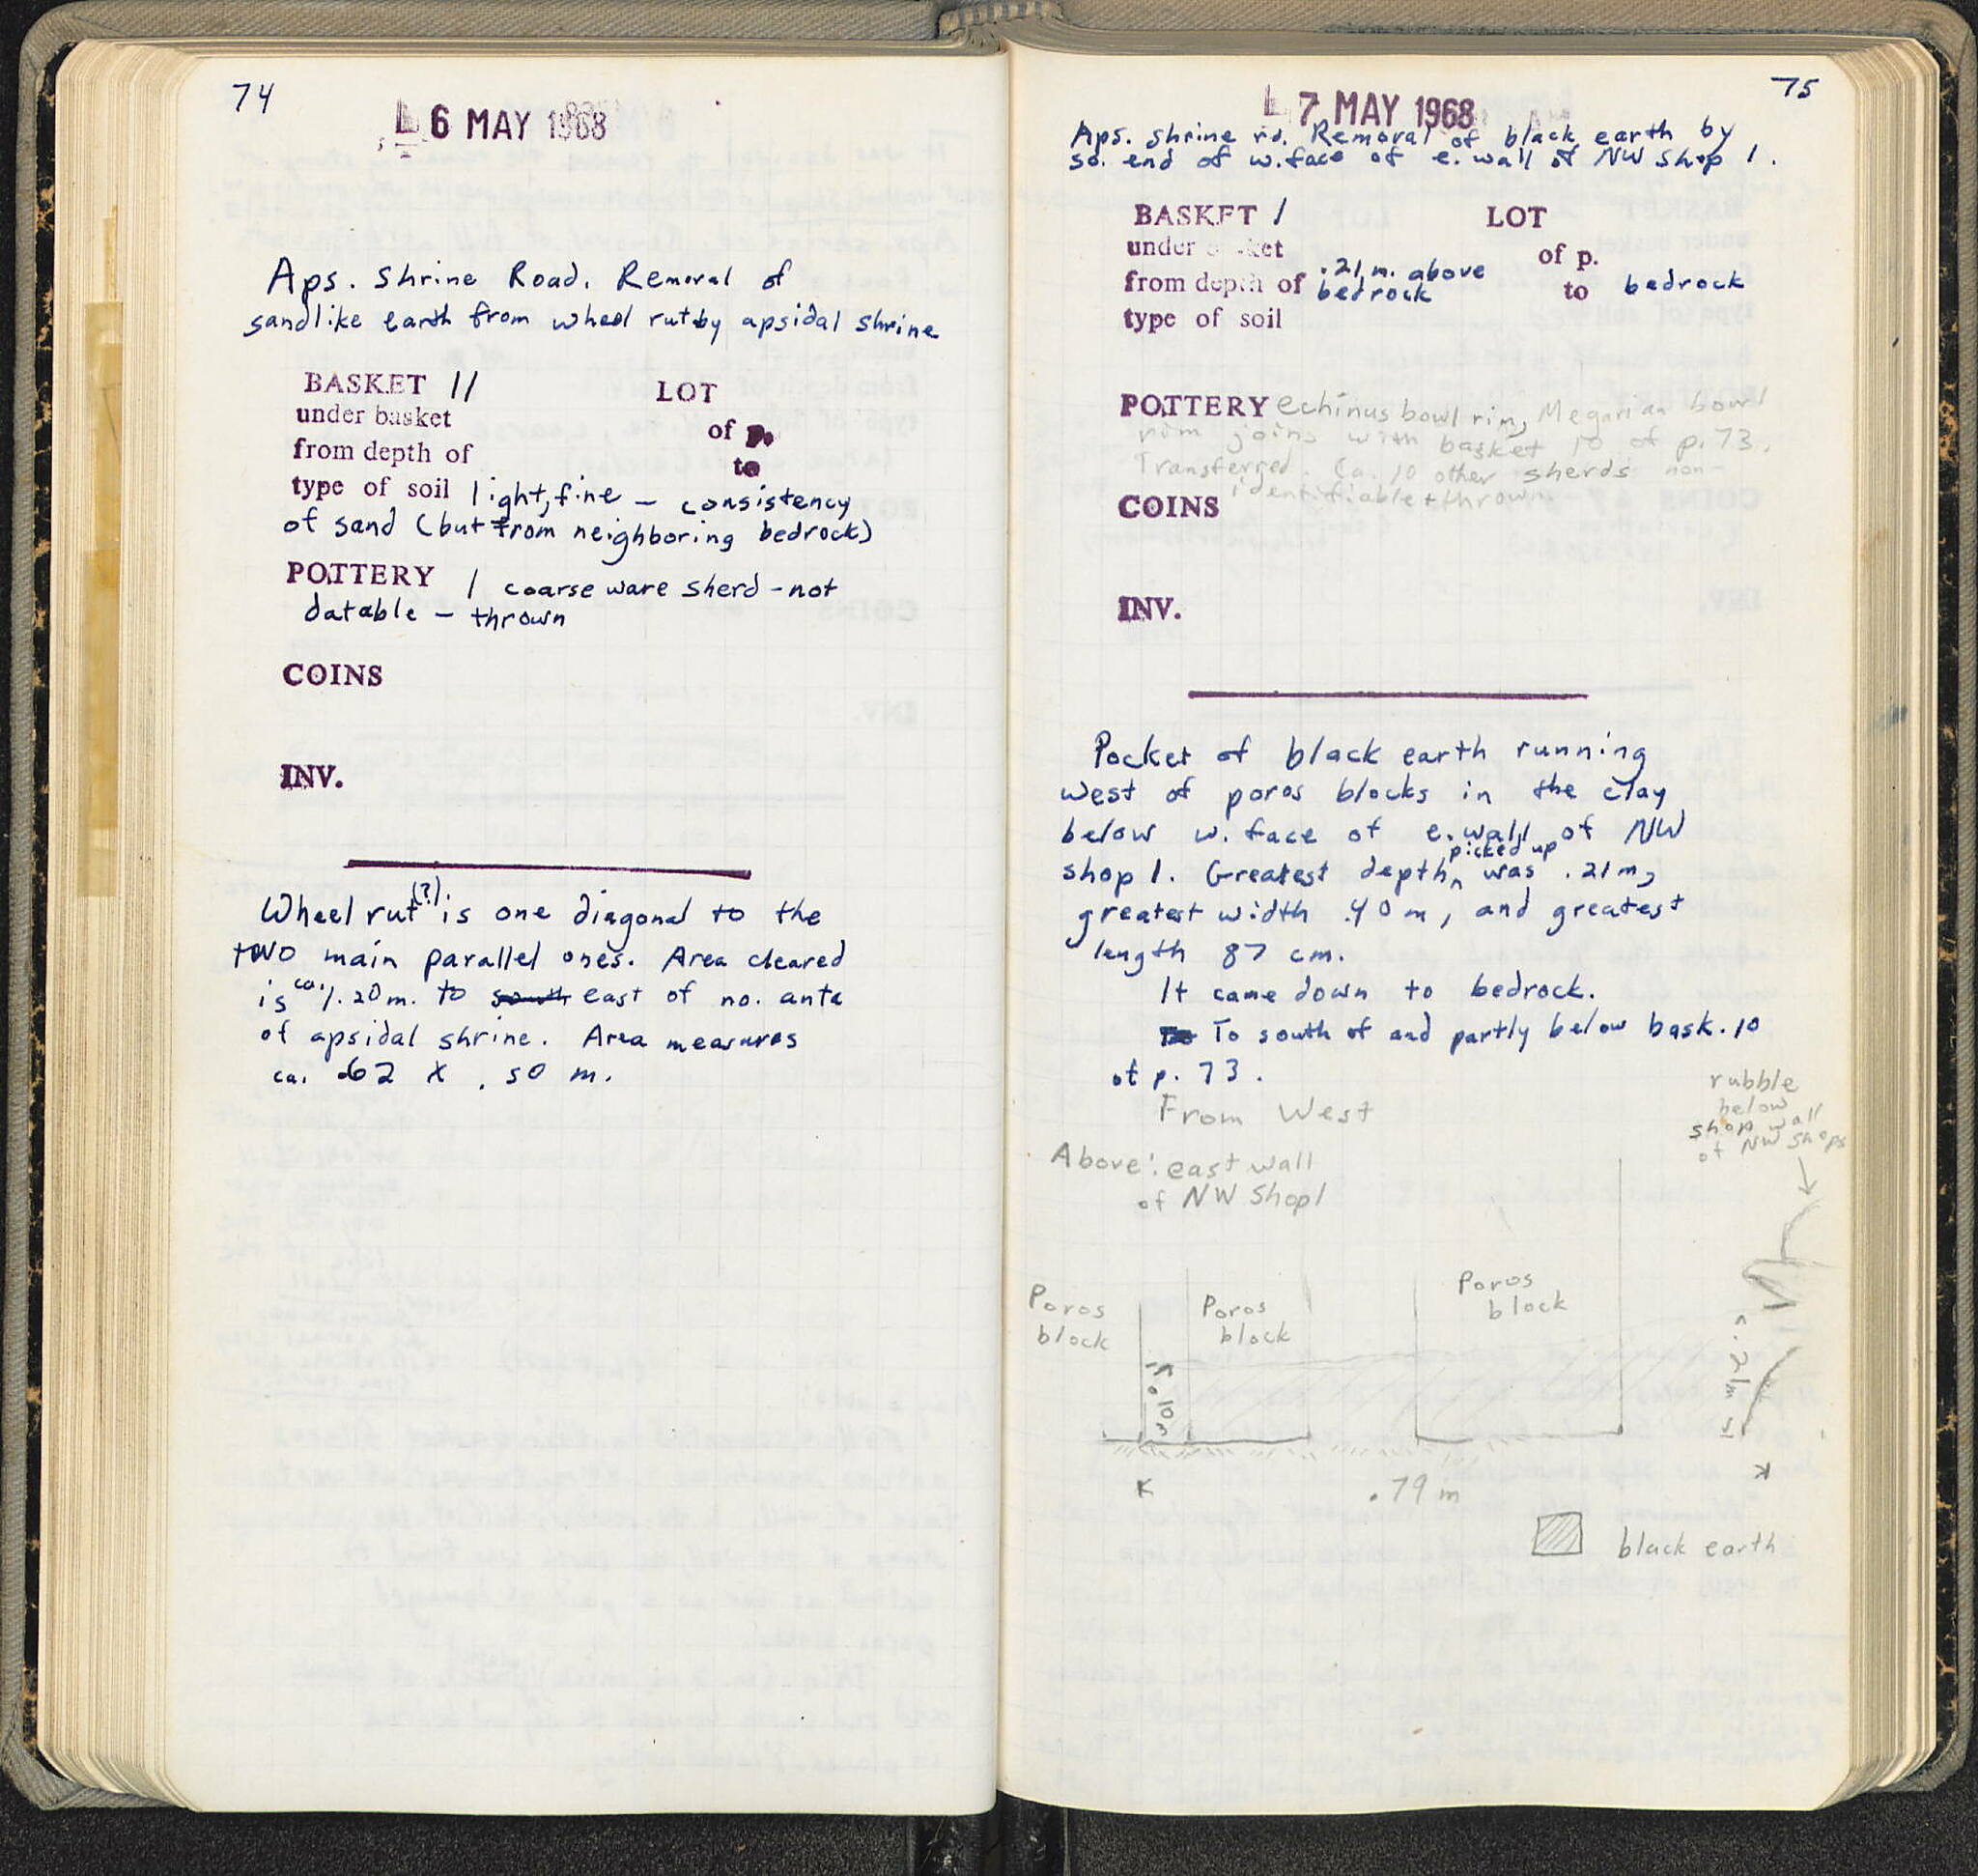 74
6 MAY 1968
Aps. Shrine Road. Removal of
sandlike earth from wheel rut by apsidal shrine
BASKET 11 LOT
under basket
of p.
from depth of to
type of soil light, fine – consistency
of sand (but from neighboring bedrock)
POTTERY 1 coarse ware sherd - not
datable – thrown
COINS
INV.
Wheel rut (?) is one diagonal to the
two main parallel ones. Area cleared
is ca. 1.20 m. to south east of no. anta
of apsidal shrine. Area measures
ca. .62 x .50 m.
75
7 MAY 1968
Aps. shrine rd. Removal of black earth by
so. end of w. face of e. wall of NW shop 1.
BASKET 1 LOT
under basket
of p.
from depth of .21 m. above bedrock to bedrock
type of soil
POTTERY echinus bowl rim, Megarian bowl
rim joins with basket 10 of p. 73.
Transferred. Ca. 10 other sherds non-
identifiable + thrown
COINS
INV.
Pocket of black earth running
west of poros blocks in the clay
below w. face of e. wall of NW
shop 1. Greatest depth picked up was .21 m,
greatest width .40 m, and greatest
length 87 cm.
It came down to bedrock.
To south of and partly below bask. 10
of p. 73.
From West
rubble
below
shop wall
of NW shops
Above: east wall
of NW Shop 1
Poros
block
Poros
block
Poros
block
.10m
.21m
.79 m
black earth